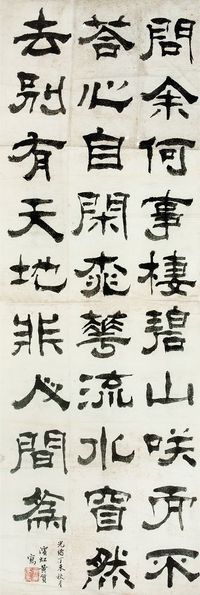 問余何事棲碧山咲而不
荅心自閑桃華流水窅然
去別有天地非人間為
光緒丁未秋月
濱虹黃質
寫